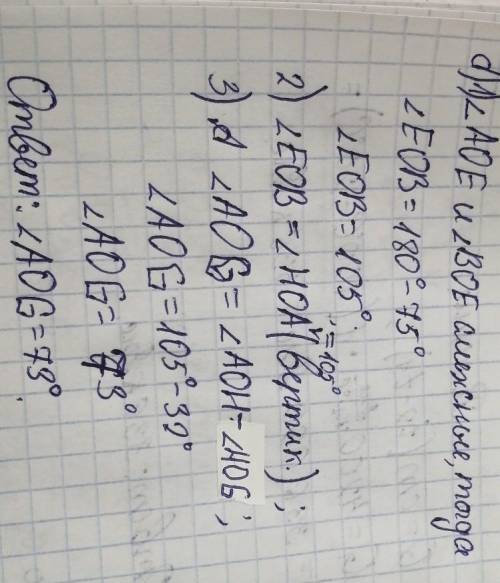 d) 1) ∠AOE и ∠BOE смежные, тогда
∠EOB = 180° - 75°
∠EOB = 105°
2) ∠EOB = ∠HOA (вертик.) = 105°;
3) ∠AOG = ∠AOH - ∠HOG;
∠AOG = 105° - 32°
∠AOG = 73°
Ответ: ∠AOG = 73°.